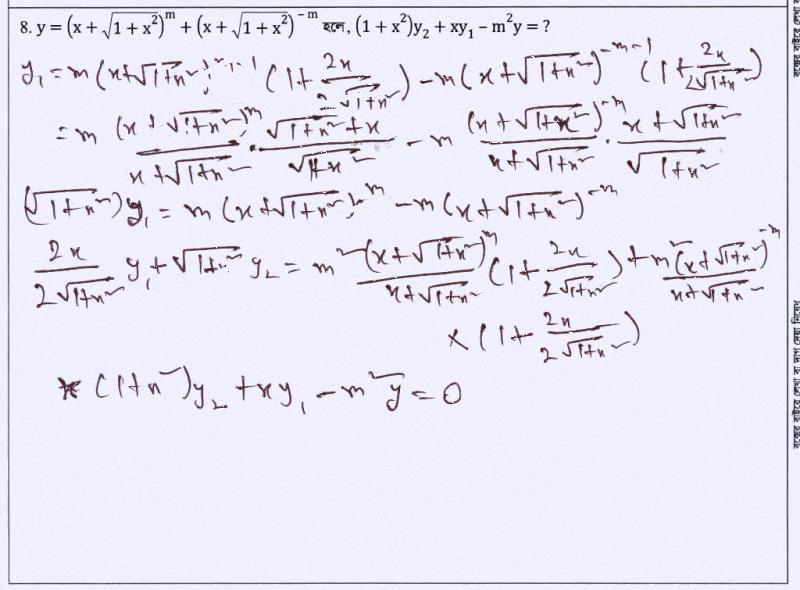 8. y = (x + √(1 + x²))^m + (x + √(1 + x²))^-m হলে, (1 + x²)y₂ + xy₁ – m²y = ?
y₁ = m(x+√(1+x²))^m-1 (1+ 2x/2√(1+x²)) – m(x+√(1+x²))^-m-1 (1+ 2x/2√(1+x²))
= m (x+√(1+x²))^m/(x+√(1+x²)) · (√(1+x²)+x)/√(1+x²) – m (x+√(1+x²))^-m/(x+√(1+x²)) · (x+√(1+x²))/√(1+x²)
(√(1+x²)) y₁ = m(x+√(1+x²))^m – m(x+√(1+x²))^-m
2x/2√(1+x²) y₁ + √(1+x²) y₂ = m² (x+√(1+x²))^m/(x+√(1+x²)) (1+ 2x/2√(1+x²)) + m² (x+√(1+x²))^-m/(x+√(1+x²))
× (1+ 2x/2√(1+x²))
(1+x²)y₂ + xy₁ – m²y = 0